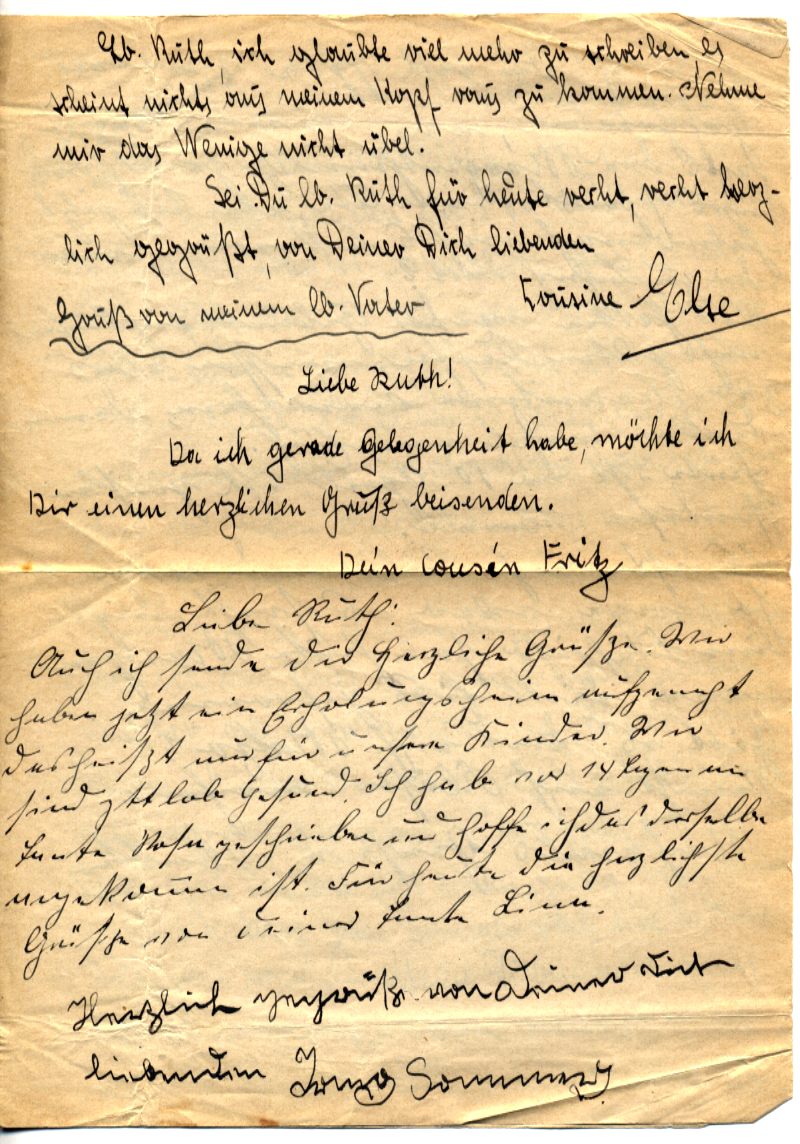 Lb. Ruth, ich glaubte viel mehr zu schreiben, es
scheint nichts aus meinem Kopf raus zu kommen. Nehme
mir das Wenige nicht übel.
Sei Du lb. Ruth, für heute recht, recht herz-
lich gegrüßt, von Deiner Dich liebenden
Cousine Else
Gruß von meinem lb. Vater
Liebe Ruth!
Da ich gerade Gelegenheit habe, möchte ich
Dir einen herzlichen Gruß beisenden.
Dein Cousin Fritz
Liebe Ruth!
Auch ich sende dir herzliche Grüße. Wir
haben jetzt ein Erholungsheim aufgemacht
das heißt nur für unsere Kinder. Wir
sind gottlob gesund. Ich hab vor 14 Tagen an
Tante Rosa geschrieben und hoffe ich das derselbe
angekommen ist. Für heute die herzlichste
Grüße von deiner Tante Lina.
Herzlich gegrüßt von Deiner Dich
liebenden Sommer